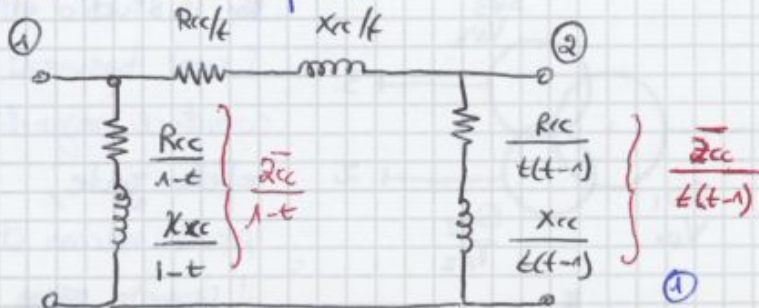 ① Rcc/t Xcc/t ②
Rcc/1-t Xxc/1-t } Z̅cc/1-t
Rcc/t(t-1) Xcc/t(t-1) } Z̅cc/t(t-1)
①